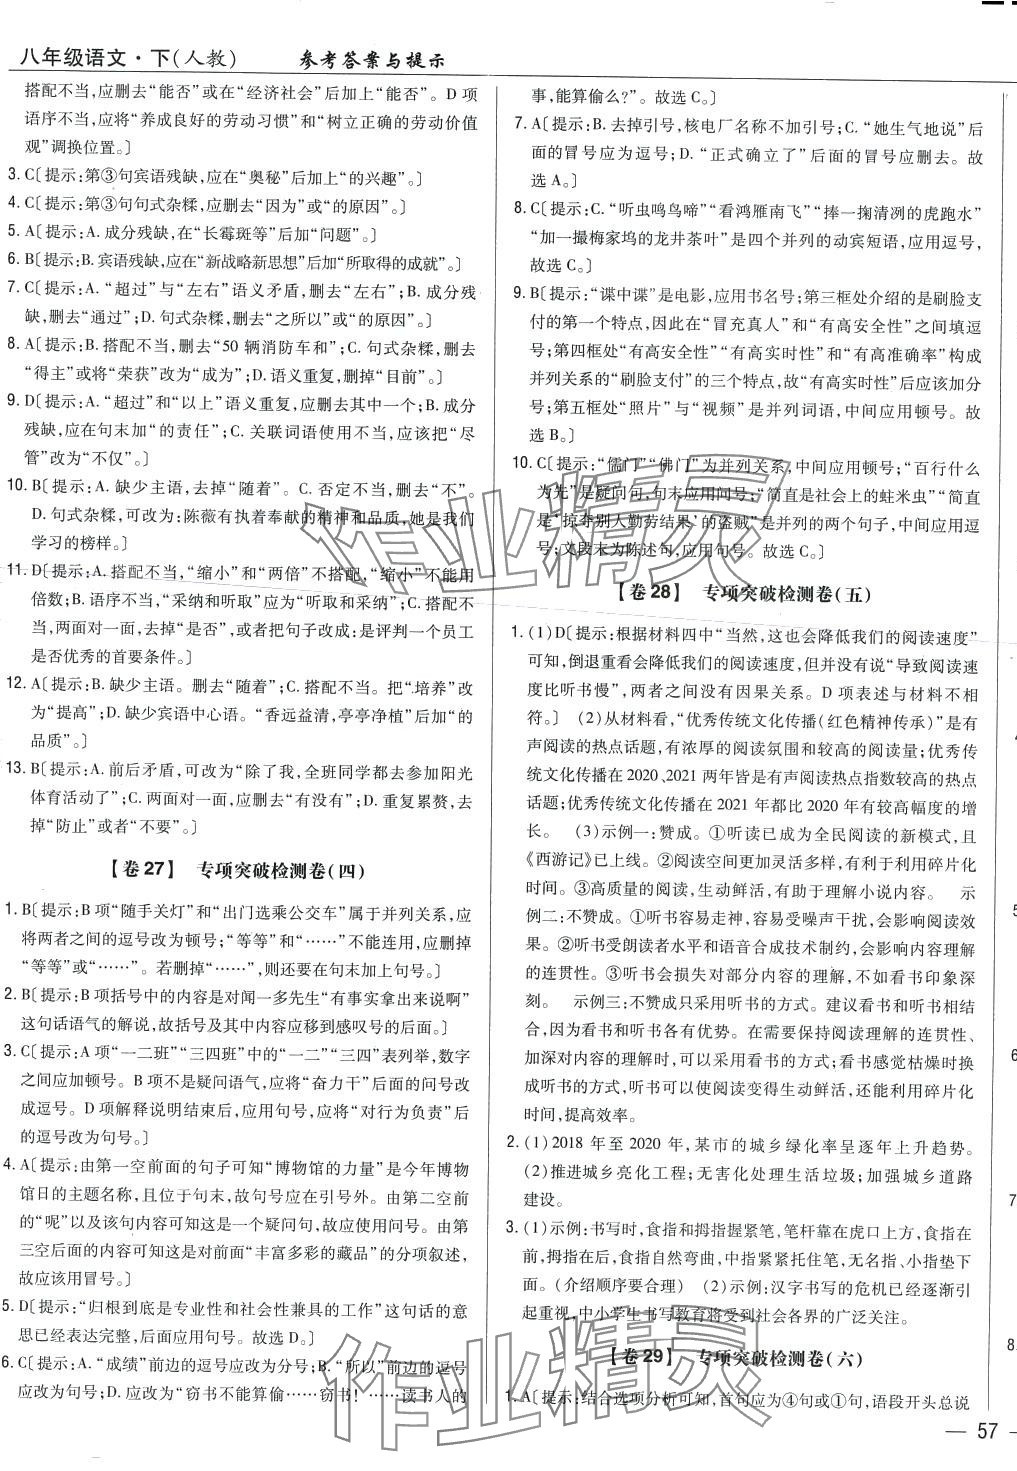 八年级语文·下(人教) 参考答案与提示
搭配不当,应删去“能否”或在“经济社会”后加上“能否”。D 项
语序不当,应将“养成良好的劳动习惯”和“树立正确的劳动价值
观”调换位置。〕
3. C〔提示:第③句宾语残缺,应在“奥秘”后加上“的兴趣”。〕
4. C〔提示:第③句句式杂糅,应删去“因为”或“的原因”。〕
5. A〔提示:A. 成分残缺,在“长霉斑等”后加“问题”。〕
6. B〔提示:B. 宾语残缺,应在“新战略新思想”后加“所取得的成就”。〕
7. C〔提示:A. “超过”与“左右”语义矛盾,删去“左右”;B. 成分残
缺,删去“通过”;D. 句式杂糅,删去“之所以”或“的原因”。〕
8. A〔提示:B. 搭配不当,删去“50 辆消防车和”;C. 句式杂糅,删去
“得主”或将“荣获”改为“成为”;D. 语义重复,删掉“目前”。〕
9. D〔提示:A. “超过”和“以上”语义重复,应删去其中一个;B. 成分
残缺,应在句末加“的责任”;C. 关联词语使用不当,应该把“尽
管”改为“不仅”。〕
10. B〔提示:A. 缺少主语,去掉“随着”。C. 否定不当,删去“不”。
D. 句式杂糅,可改为:陈薇有执着奉献的精神和品质,她是我们
学习的榜样。〕
11. D〔提示:A. 搭配不当,“缩小”和“两倍”不搭配,“缩小”不能用
倍数;B. 语序不当,“采纳和听取”应为“听取和采纳”;C. 搭配不
当,两面对一面,去掉“是否”,或者把句子改成:是评判一个员工
是否优秀的首要条件。〕
12. A〔提示:B. 缺少主语。删去“随着”;C. 搭配不当。把“培养”改
为“提高”;D. 缺少宾语中心语。“香远益清,亭亭净植”后加“的
品质”。〕
13. B〔提示:A. 前后矛盾,可改为“除了我,全班同学都参加阳光
体育活动了”;C. 两面对一面,应删去“有没有”;D. 重复累赘,去
掉“防止”或者“不要”。〕
【卷 27】 专项突破检测卷(四)
1. B〔提示:B 项“随手关灯”和“出门选乘公交车”属于并列关系,应
将两者之间的逗号改为顿号;“等等”和“……”不能连用,应删掉
“等等”或“……”。若删掉“……”,则还要在句末加上句号。〕
2. B〔提示:B 项括号中的内容是对闻一多先生“有事实拿出来说啊”
这句话语气的解说,故括号及其中内容应移到感叹号的后面。〕
3. C〔提示:A 项“一二班”“三四班”中的“一二”“三四”表列举,数字
之间应加顿号。B 项不是疑问语气,应将“奋力干”后面的问号改
成逗号。D 项解释说明结束后,应用句号,应将“对行为负责”后
的逗号改为句号。〕
4. A〔提示:由第一空前面的句子可知“博物馆的力量”是今年博物
馆日的主题名称,且位于句末,故句号应在引号外。由第二空前
的“呢”以及该句内容可知这是一个疑问句,故应使用问号。由第
三空后面的内容可知这是对前面“丰富多彩的藏品”的分项叙述,
故应该用冒号。〕
5. D〔提示:“归根到底是专业性和社会性兼具的工作”这句话的意
思已经表达完整,后面应用句号。故选 D。〕
6. C〔提示:A. “成绩”前边的逗号应改为分号;B. “所以”前边的逗号
应改为句号;D. 应改为“窃书不能算偷……窃书!……读书人的
事,能算偷么?”。故选 C。〕
7. A〔提示:B. 去掉引号,核电厂名称不加引号;C. “她生气地说”后
面的冒号应为逗号;D. “正式确立了”后面的冒号应删去。故
选 A。〕
8. C〔提示:C. “听虫鸣鸟啼”“看鸿雁南飞”“捧一掬清冽的虎跑水”
“加一撮梅家坞的龙井茶叶”是四个并列的动宾短语,应用逗号。
故选 C。〕
9. B〔提示:“谍中谍”是电影,应用书名号;第三框处介绍的是刷脸支
付的第一个特点,因此在“冒充真人”和“有高安全性”之间填逗
号;第四框处“有高安全性”“有高实时性”和“有高准确率”构成
并列关系的“刷脸支付”的三个特点,故“有高实时性”后应该加分
号;第五框处“照片”与“视频”是并列词语,中间应用顿号。故
选 B。〕
10. C〔提示:“儒门”“佛门”为并列关系,中间应用顿号;“百行什么
为先”是疑问句,句末应用问号;“简直是社会上的蛀米虫”“简直
是‘掠夺别人勤劳结果’的盗贼”是并列的两个句子,中间应用逗
号;文段末为陈述句,应用句号。故选 C。〕
【卷 28】 专项突破检测卷(五)
1. (1)D〔提示:根据材料四中“当然,这也会降低我们的阅读速度”
可知,倒退重看会降低我们的阅读速度,但并没有说“导致阅读速
度比听书慢”,两者之间没有因果关系。D 项表述与材料不相
符。〕 (2)从材料看,“优秀传统文化传播(红色精神传承)”是有
声阅读的热点话题,有浓厚的阅读氛围和较高的阅读量;优秀传
统文化传播在 2020、2021 两年皆是有声阅读热点指数较高的热点
话题;优秀传统文化传播在 2021 年都比 2020 年有较高幅度的增
长。 (3)示例一:赞成。①听读已成为全民阅读的新模式,且
《西游记》已上线。②阅读空间更加灵活多样,有利于利用碎片化
时间。③高质量的阅读,生动鲜活,有助于理解小说内容。 示
例二:不赞成。①听书容易走神,容易受噪声干扰,会影响阅读效
果。②听书受朗读者水平和语音合成技术制约,会影响内容理解
的连贯性。③听书会损失对部分内容的理解,不如看书印象深
刻。 示例三:不赞成只采用听书的方式。建议看书和听书相结
合,因为看书和听书各有优势。在需要保持阅读理解的连贯性、
加深对内容的理解时,可以采用看书的方式;看书感觉枯燥时换
成听书的方式,听书可以使阅读变得生动鲜活,还能利用碎片化
时间,提高效率。
2. (1)2018 年至 2020 年,某市的城乡绿化率呈逐年上升趋势。
(2)推进城乡亮化工程;无害化处理生活垃圾;加强城乡道路
建设。
3. (1)示例:书写时,食指和拇指握紧笔,笔杆靠在虎口上方,食指在
前,拇指在后,食指自然弯曲,中指紧紧托住笔,无名指、小指垫下
面。(介绍顺序要合理) (2)示例:汉字书写的危机已经逐渐引
起重视,中小学生书写教育将受到社会各界的广泛关注。
【卷 29】 专项突破检测卷(六)
1. A〔提示:结合选项分析可知,首句应为④句或①句,语段开头总说
— 57 —
作业精灵
作业精灵